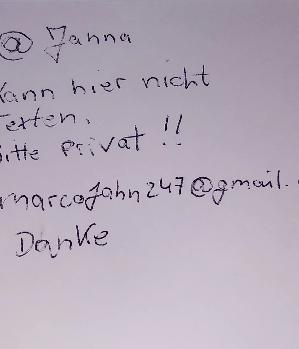 @ Janna
Kann hier nicht
Texten.
Bitte Privat !!
marcoJahn247@gmail.
Danke